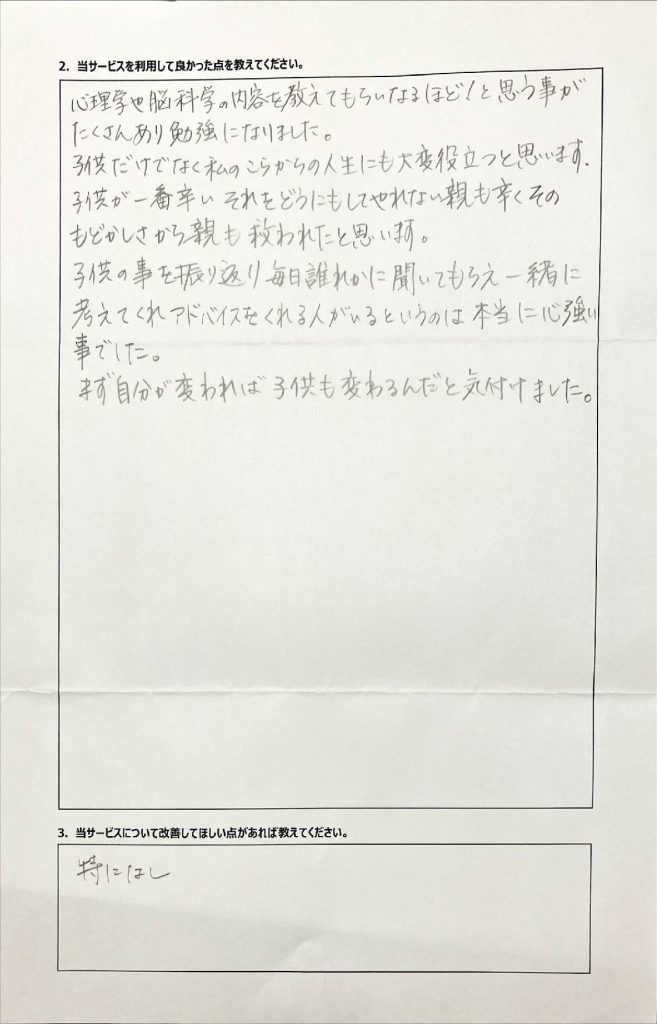 2. 当サービスを利用して良かった点を教えてください。
心理学や脳科学の内容を教えてもらいなるほど!と思う事が
たくさんあり勉強になりました。
子供だけでなく私のこらからの人生にも大変役立つと思います.
子供が一番辛い それをどうにもしてやれない親も辛くその
もどかしさから親も救われたと思います。
子供の事を振り返り毎日誰れかに聞いてもらえ一緒に
考えてくれアドバイスをくれる人がいるというのは本当に心強い
事でした。
まず自分が変われば子供も変わるんだと気付けました。
3. 当サービスについて改善してほしい点があれば教えてください。
特になし